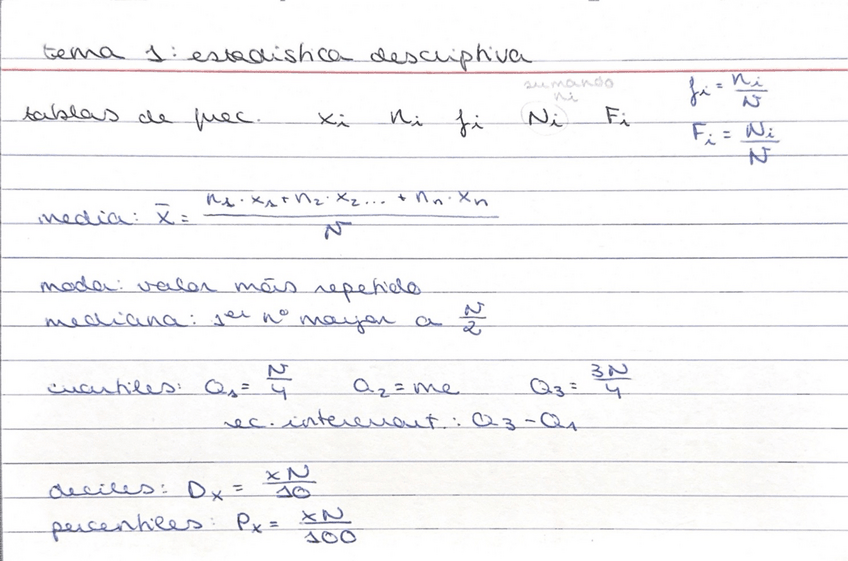 tema 1: estadistica descriptiva
sumando ni
tablas de frec. xi ni fi Ni Fi
fi = ni/N
Fi = Ni/N
media: x̄ = n1·x1+n2·x2... + nn·xn / N
moda: valor máis repetido
mediana: 1er nº mayor a N/2
cuartiles: Q1 = N/4 Q2 = me Q3 = 3N/4
rec. intercuart.: Q3 - Q1
deciles: Dx = xN/10
percentiles: Px = xN/100